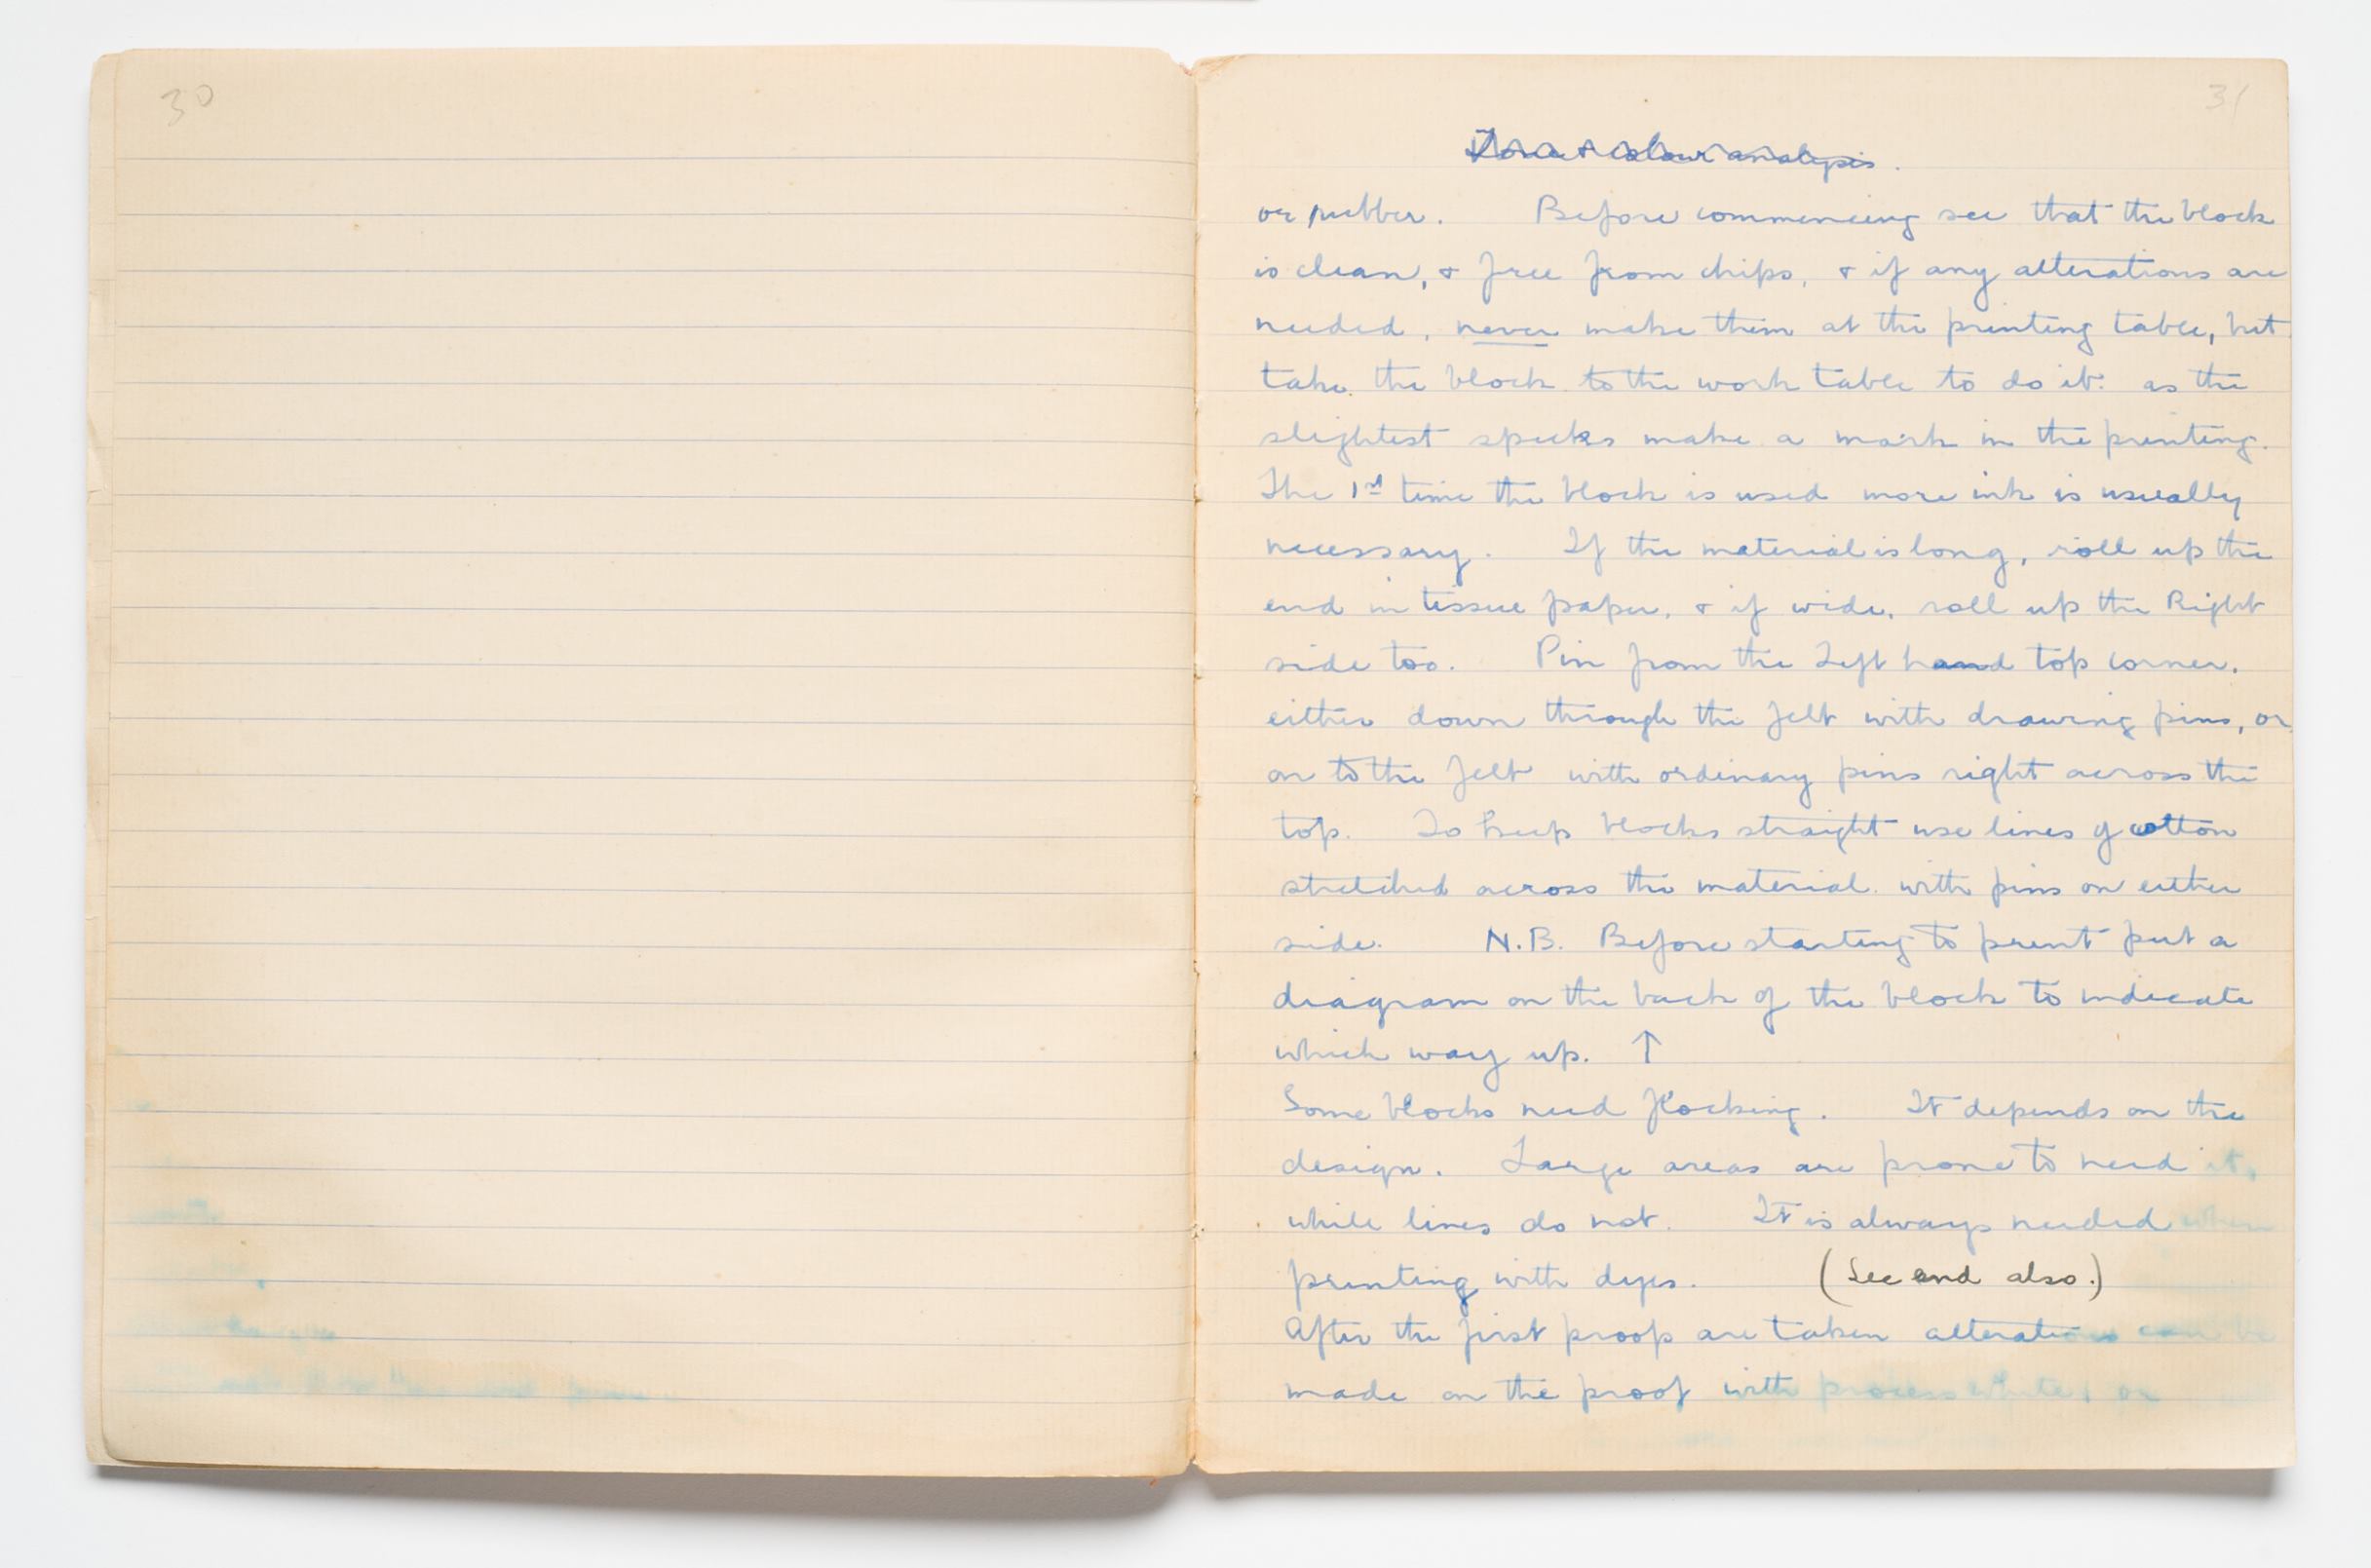 30
31
Tone & Colour analysis.
or rubber. Before commencing see that the block
is clean, & free from chips, & if any alterations are
needed, never make them at the printing table, but
take the block to the work table to do it. as the
slightest specks make a mark in the printing.
The 1st time the block is used more ink is usually
necessary. If the material is long, roll up the
end in tissue paper, & if wide, roll up the Right
side too. Pin from the Left hand top corner.
either down through the felt with drawing pins, or
on to the felt with ordinary pins right across the
top. To keep blocks straight use lines of cotton
stretched across the material. with pins on either
side. N.B. Before starting to print put a
diagram on the back of the block to indicate
which way up. ↑
Some blocks need flocking. It depends on the
design. Large areas are prone to need it,
while lines do not. It is always needed when
printing with dyes. (See end also.)
After the first proofs are taken alterations can be
made on the proof with process white, or